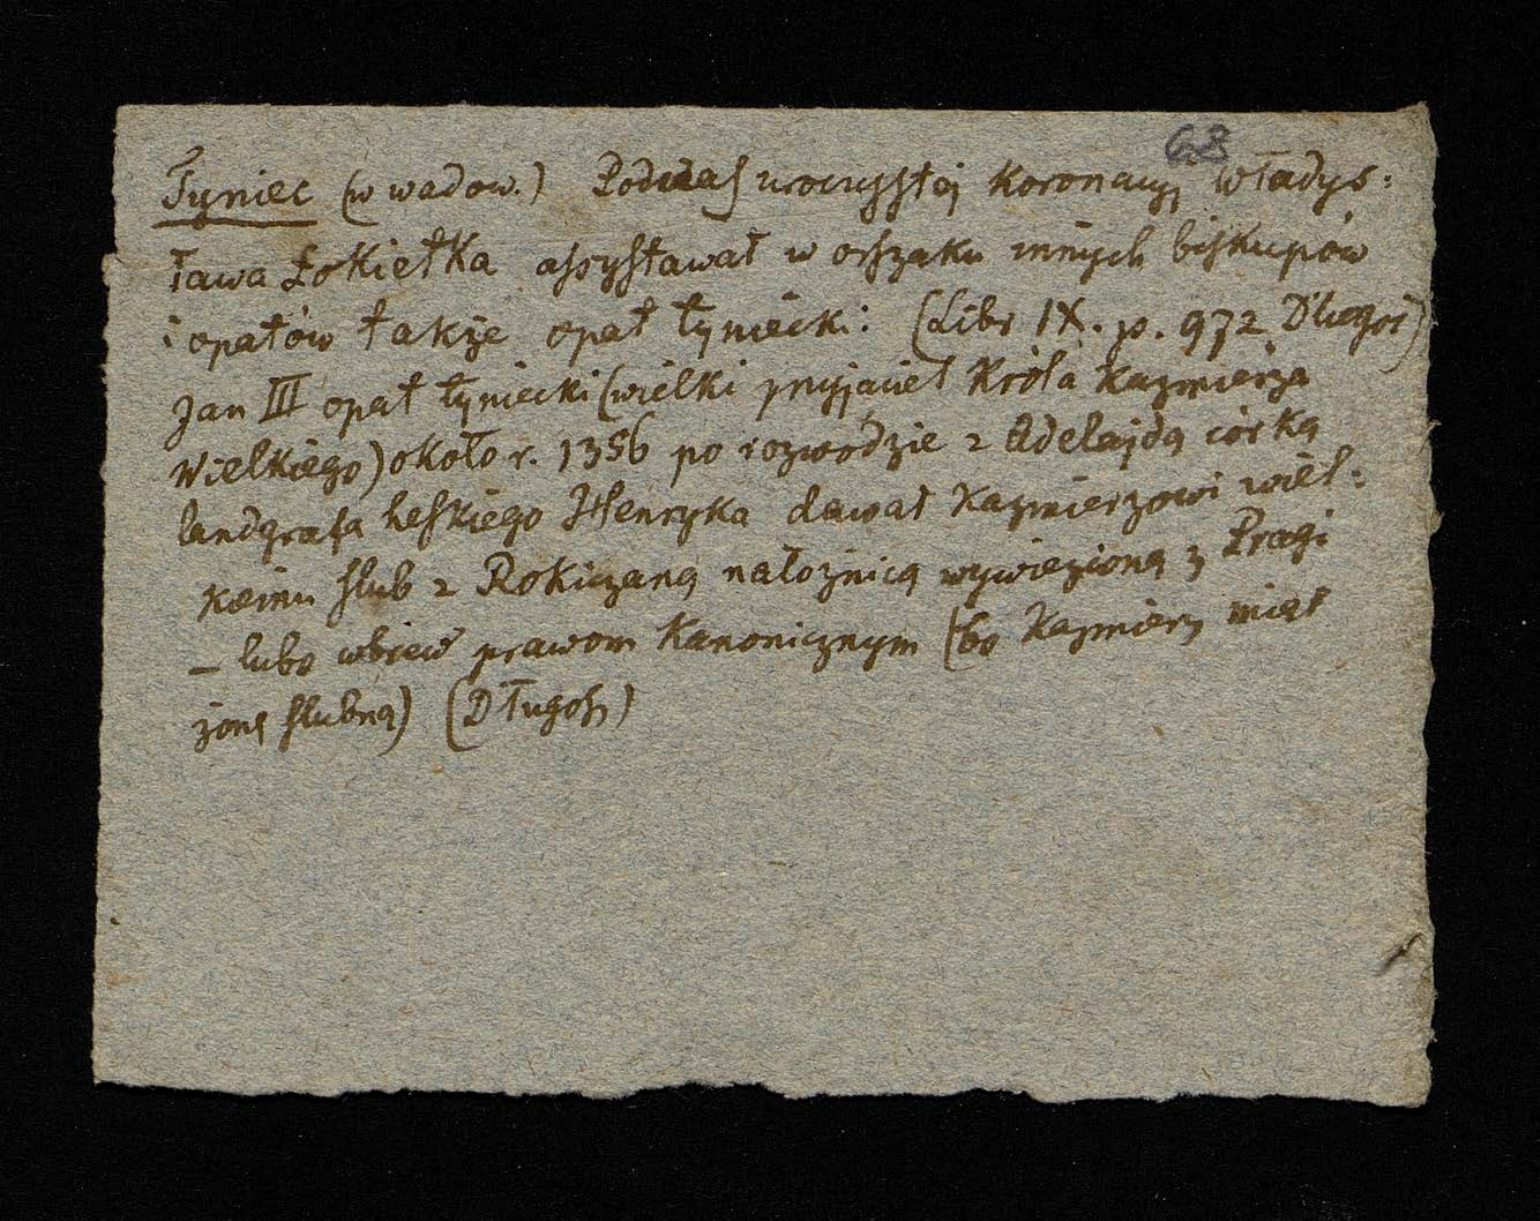 68
Tyniec (w wadow.) Podczas uroczystej Koronacyj Władys:
ława Łokietka assystawał w orszaku innych biskupów
i opatów także opat tyniecki: (Libr IX. p. 972 Długos)
Jan III opat tyniecki (wielki przyjaciel Króla Kazmierza
Wielkiego) około r. 1356 po rozwodzie z Adelajdą córką
landgrafa heskiego Henryka dawał Kazmierzowi wiel:
kiemu slub z Rokiczaną nałożnicą wywiezioną z Pragi
– lubo wbrew prawom Kanonicznym (bo Kazmierz miał
żonę slubną) (Długosz)